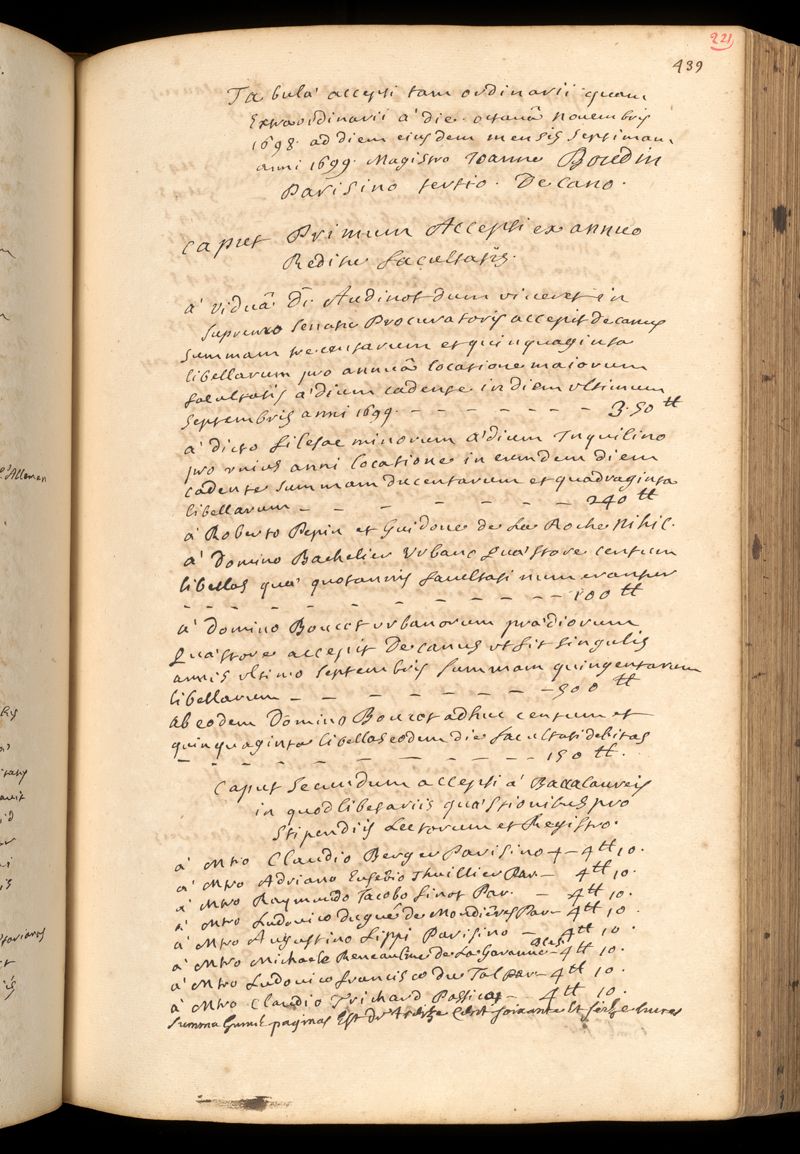 221
439
Tabula accepti tam ordinarii quam
Extraordinarii a' die octavâ novembris
1698. ad diem eiusdem mensis septimam
anni 1699. Magistro Joanne Boudin
Parisino tertio. Decano.
Caput Primum Accepti ex annuo
Reditu facultatis.
a' viduâ Di Audinot dum viveret in
supremo senatu Procuratoris accepit decanus
summam trecentarum et quinquaginta
libellarum pro annuâ locatione maiorum
facultatis ædium cadente in diem ultimum
septembris anni 1699. - - - - - - - 3.50 tt
a' dicto filesac minorum ædium Inquilino
pro unius anni locatione in eumdem diem
cadente summam ducentarum et quadraginta
libellarum - - - - - - - - 240 tt
a' Roberto Pepin et Guidone de La Roche Nihil.
a' Domino Bachelier Urbano quæstore centum
libellas quæ quotannis facultati numerantur
- - - - - - - - - - 100 tt
a' Domino Boucot urbanorum prædiorum
quæstore accepit Decanus ut fit singulis
annis ultimo septembris summam quingentarum
libellarum - - - - - - - - 500 tt
ab eodem Domino Boucot adhuc centum et
quinquaginta libellas eodem die facultati debitas
- - - - - - - - - - 150 tt.
Caput Secundum accepti a' Baccalaureis
in quodlibetariis quæstionibus pro
Stipendiis Lectorum et Registro.
a' Mro Claudio Berger Parisino + - 4 tt 10.
a' Mro Adriano Eugenio Thuillier Par - 4 tt 10.
a' Mro Raymundo Jacobo finot Par. - 4 tt 10.
a' Mro Ludovico Duguê de Mondières Par - 4 tt 10.
a' Mro Augustino Lippi Parisino - 4 tt 10.
a' Mro Michaele Reneaulme de La Garanne Bles. - 4 tt 10.
a' Mro Ludovico francisco du Tal Par - 4 tt 10.
a' Mro Claudio Trichard - 4 tt 10.
Summa paginas Est de treize Cent soixante Et seize livres